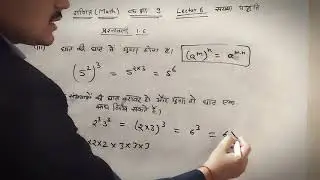 गणित (Math) कक्षा 9 Lecture 6 संख्या पद्धति
प्रश्नावली 1.6
(iii) घात की घात का गुणा होता है। (aᵐ)ⁿ = aᵐ·ⁿ
(5²)³ = 5²ˣ³ = 5⁶
की घात बराबर हो और गुणा हो घात एक
साथ लिख सकते हैं।
2³3³ = (2×3)³ = 6³ = 6
×2×2×3×3×3